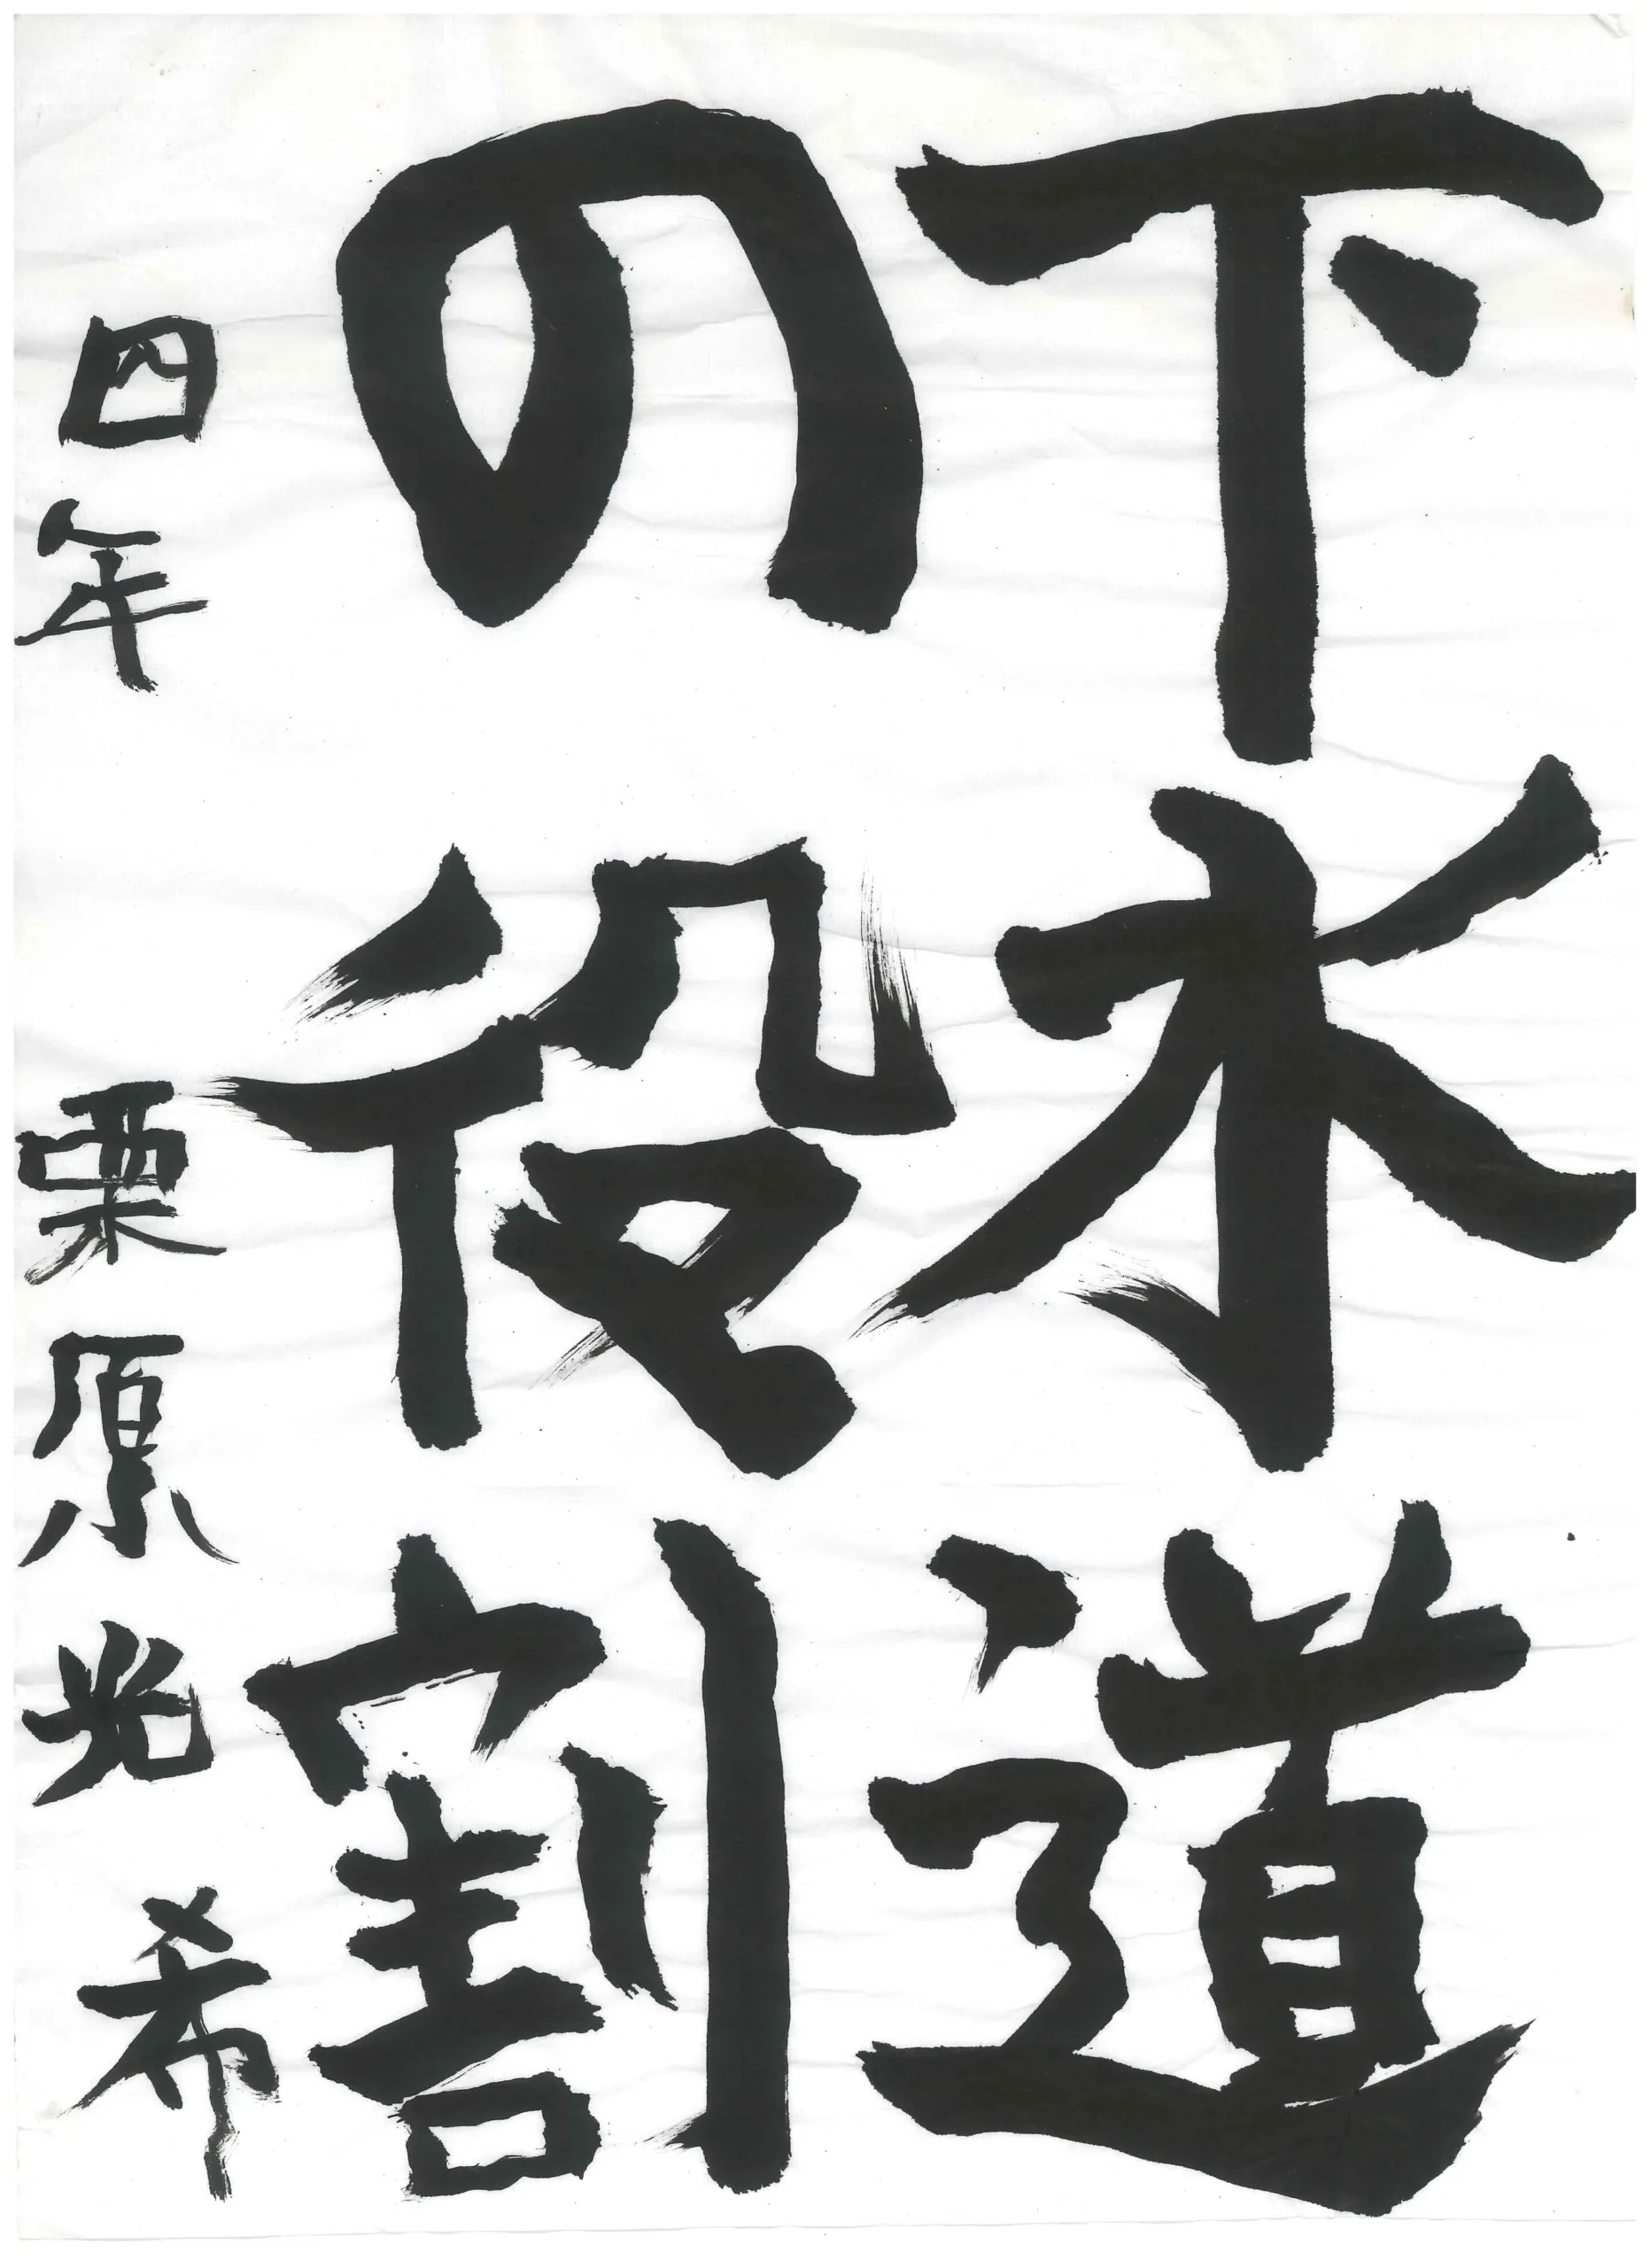 下水道
の役割
四年 栗原光希